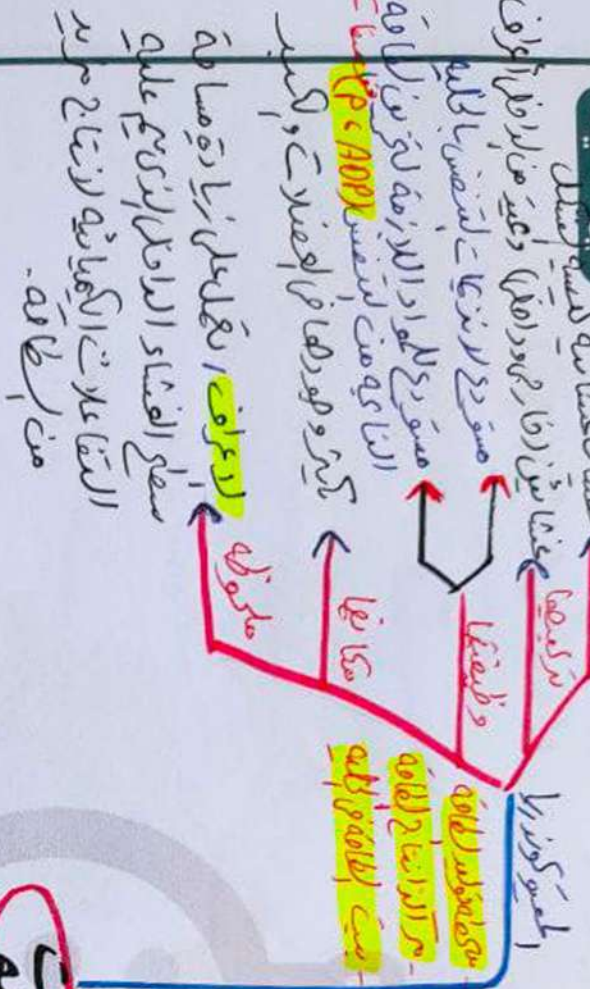 الميتوكوندريا
- محطة توليد الطاقة
- مركز انتاج الطاقة
- بيت الطاقة في الخلية
تركيبها
غشائين خارجي وداخلي من الداخلي اعراف
وظيفتها
مستودع لانزيمات التنفس بالخلية
مستودع للمواد اللازمة لتخزين الطاقة
الناتجة من التنفس (ADP، P)
مكانها
يكثر وجودها في العضلات والكبد
ملحوظة
الاعراف / تعمل على زيادة مساحة
سطح الغشاء الداخلي الذي يتم عليه
التفاعلات الكيميائية لانتاج مزيد
من الطاقة.